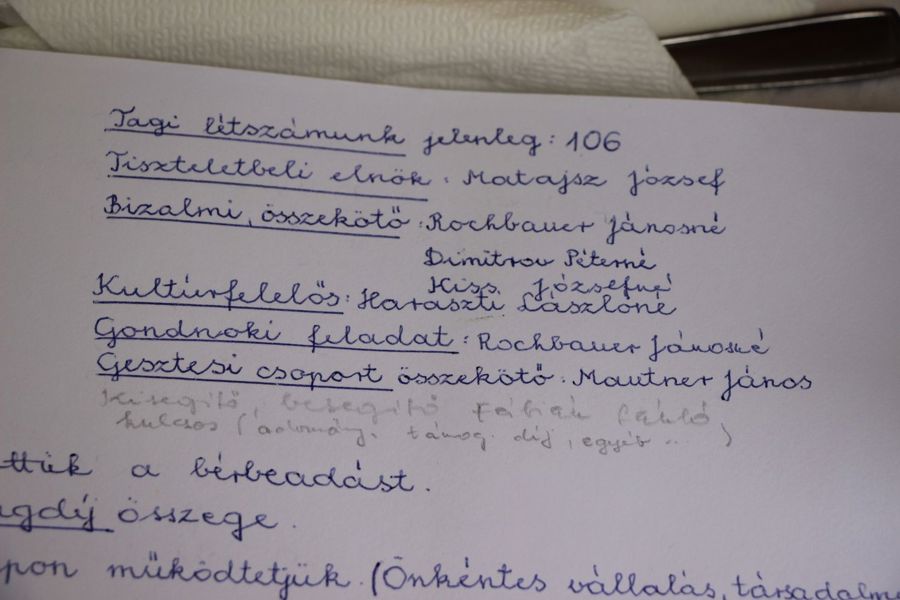 Tagi létszámunk jelenleg: 106
Tiszteletbeli elnök: Matajsz József
Bizalmi, összekötő: Rochbauer Jánosné
Dimitrov Péterné
Kiss Józsefné
Kultúrfelelős: Haraszti Lászlóné
Gondnoki feladat: Rochbauer Jánosné
Gesztesi csoport összekötő: Mautner János
Kisegítő, besegítő Fábián
kulcsos (adomány, támog. díj, egyéb ... )
ttük a bérbeadást.
gdíj összege.
pon működtetjük. (Önkéntes vállalás, társadalm